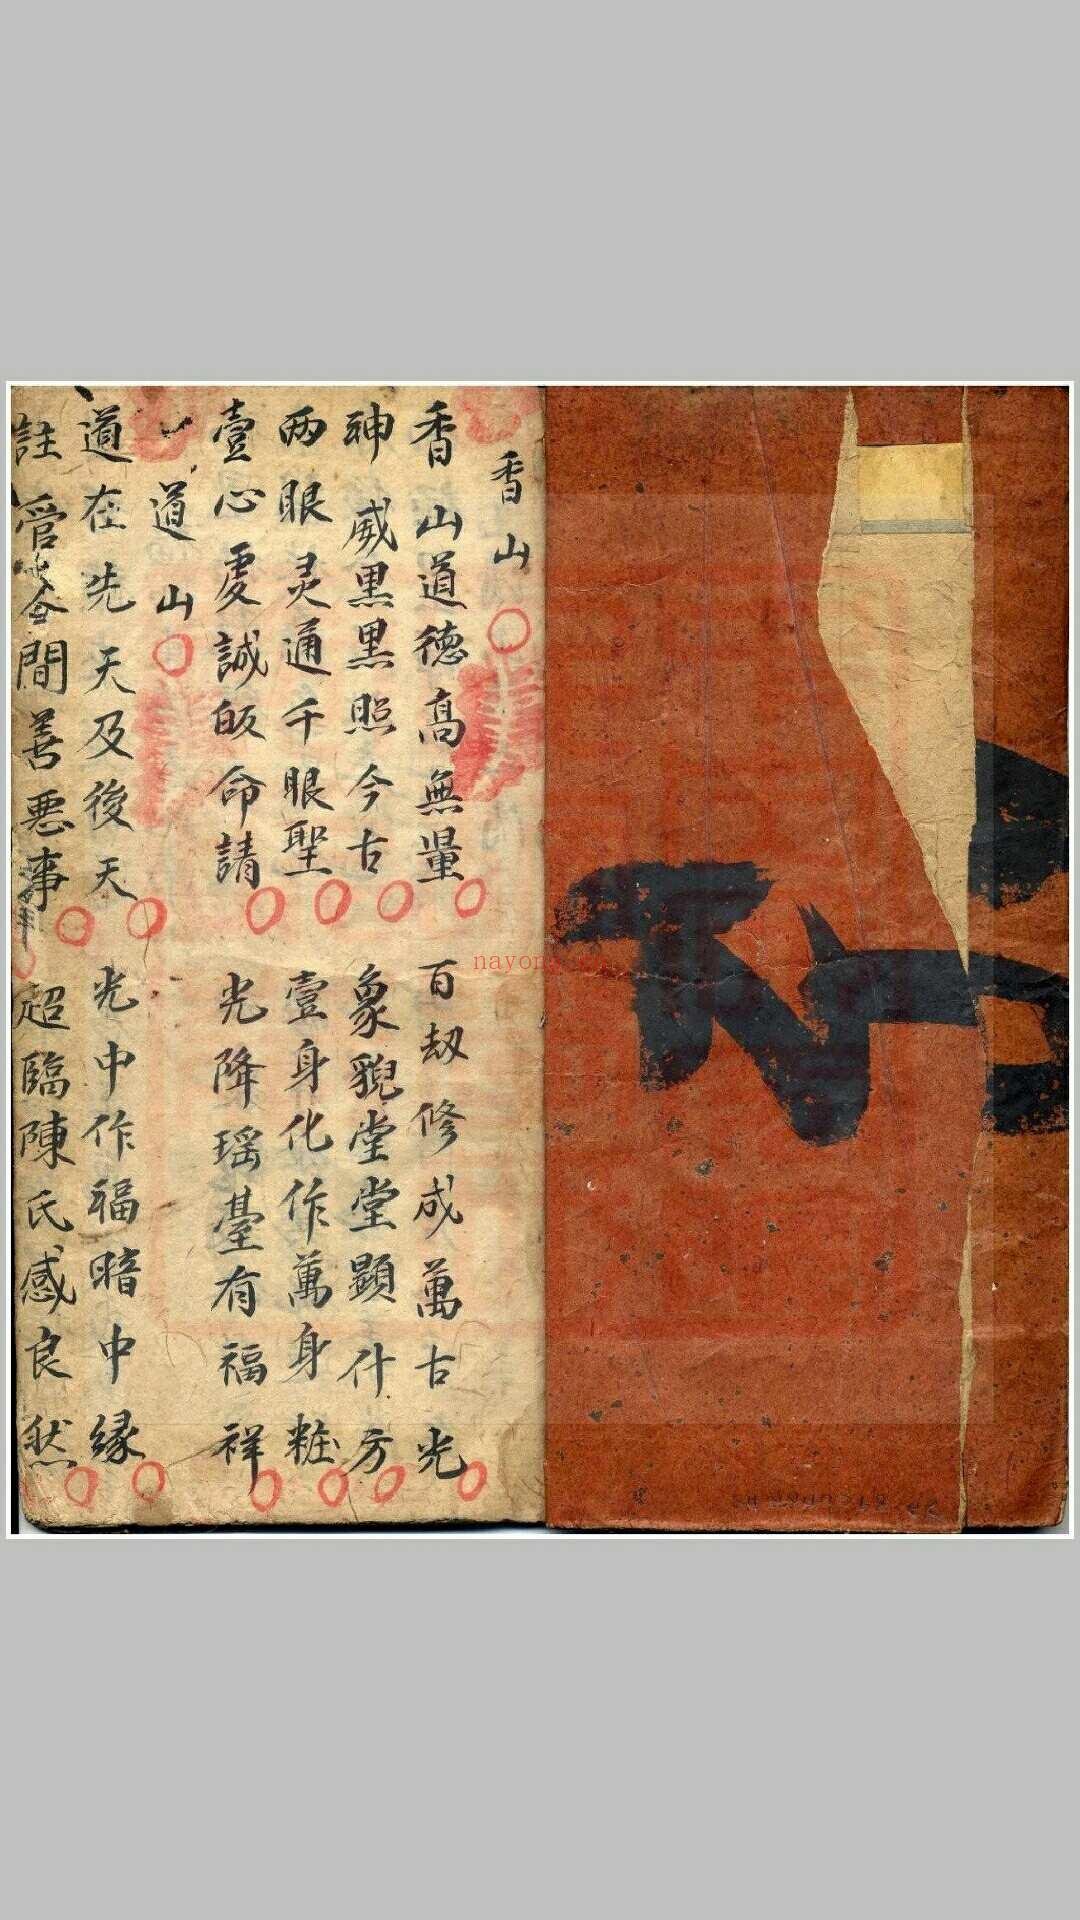 香山
香山道德高無量 百劫修成萬古光
神威黑黑照今古 象貌堂堂顕什方
两眼灵通千眼聖 壹身化作萬身粧
壹心虔誠皈命請 光降瑶臺有福祥
道山
道在先天及後天 光中作福暗中縁
註管 間善悪事 超臨陳氏感良然
nayong.cn